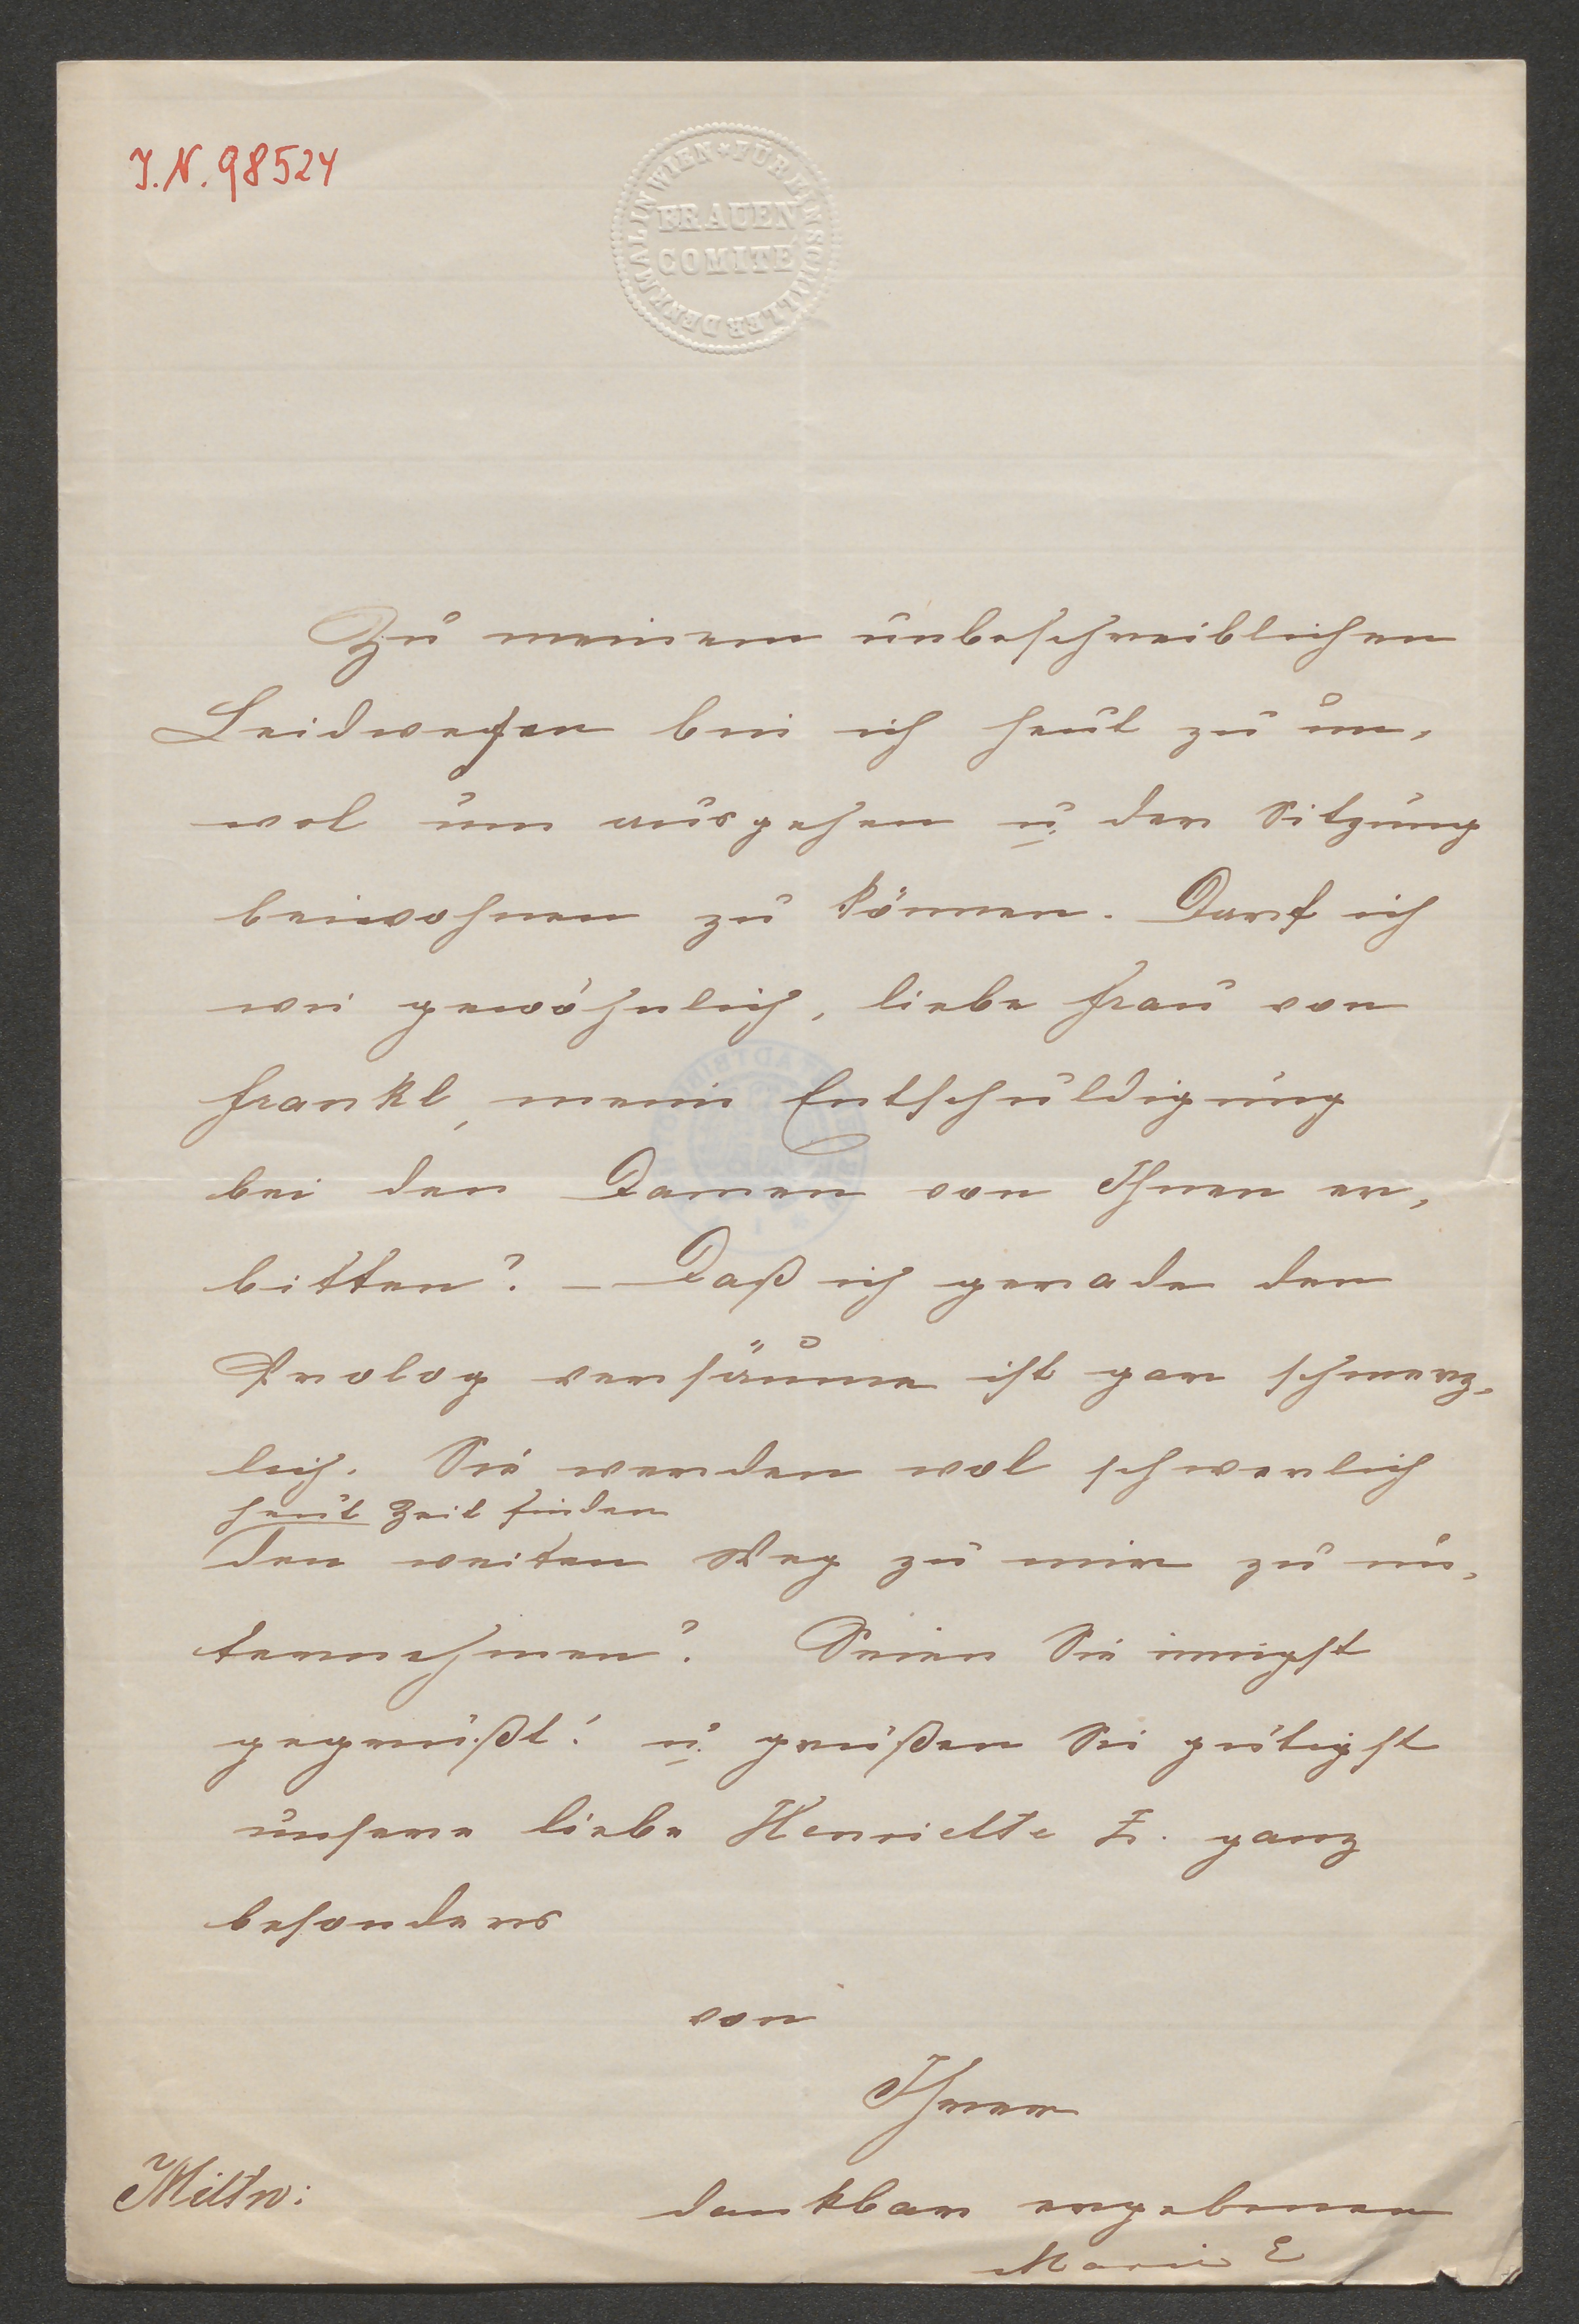 J.N. 98524
FÜR EIN SCHILLER DENKMAL IN WIEN *
FRAUEN
COMITE
Zu meinem unbeschreiblichen
Leidwesen bin ich heut zu un-
wol um ausgehen u. der Sitzung
beiwohnen zu können. Darf ich
wie gewöhnlich, liebe Frau von
Frankl, meine Entschuldigung
bei den Damen von Ihnen er-
bitten? – Daß ich gerade den
Prolog versäume ist gar schmerz-
lich. Sie werden wol schwerlich
heut Zeit finden
den weiten Weg zu mir zu un-
ternehmen? Seien Sie innigst
gegrüßt! u. grüßen Sie gütigst
unsere liebe Henriette Z. ganz
besonders
von
Ihrer
dankbar ergebenen
Mittw:
Marie E